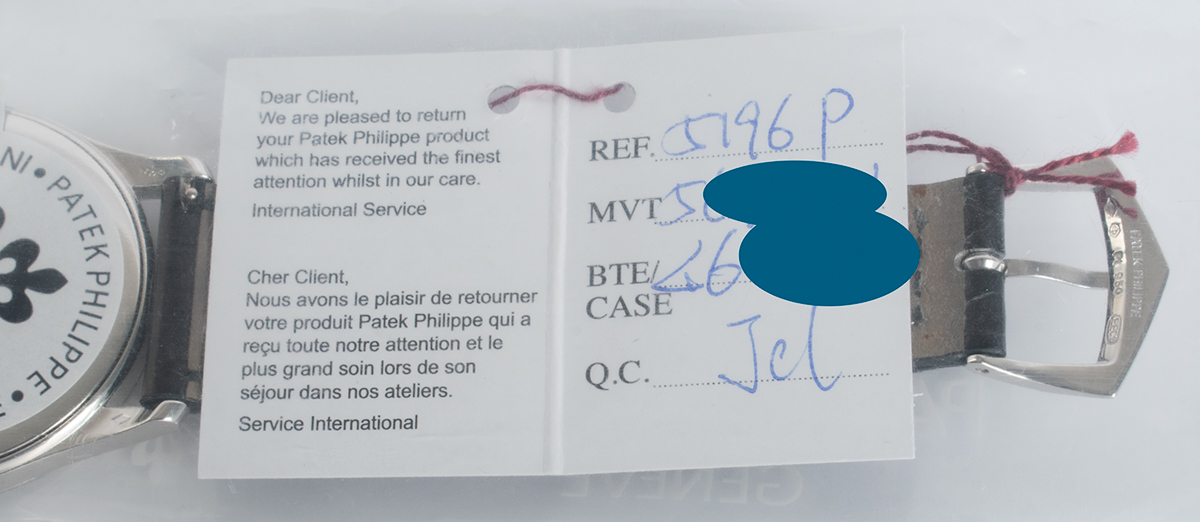 Dear Client,
We are pleased to return
your Patek Philippe product
which has received the finest
attention whilst in our care.
International Service
Cher Client,
Nous avons le plaisir de retourner
votre produit Patek Philippe qui a
reçu toute notre attention et le
plus grand soin lors de son
séjour dans nos ateliers.
Service International
REF. 5196 P
MVT
BTE/
CASE
Q.C.
PATEK PHILIPPE
PATEK PHILIPPE
GENEVE